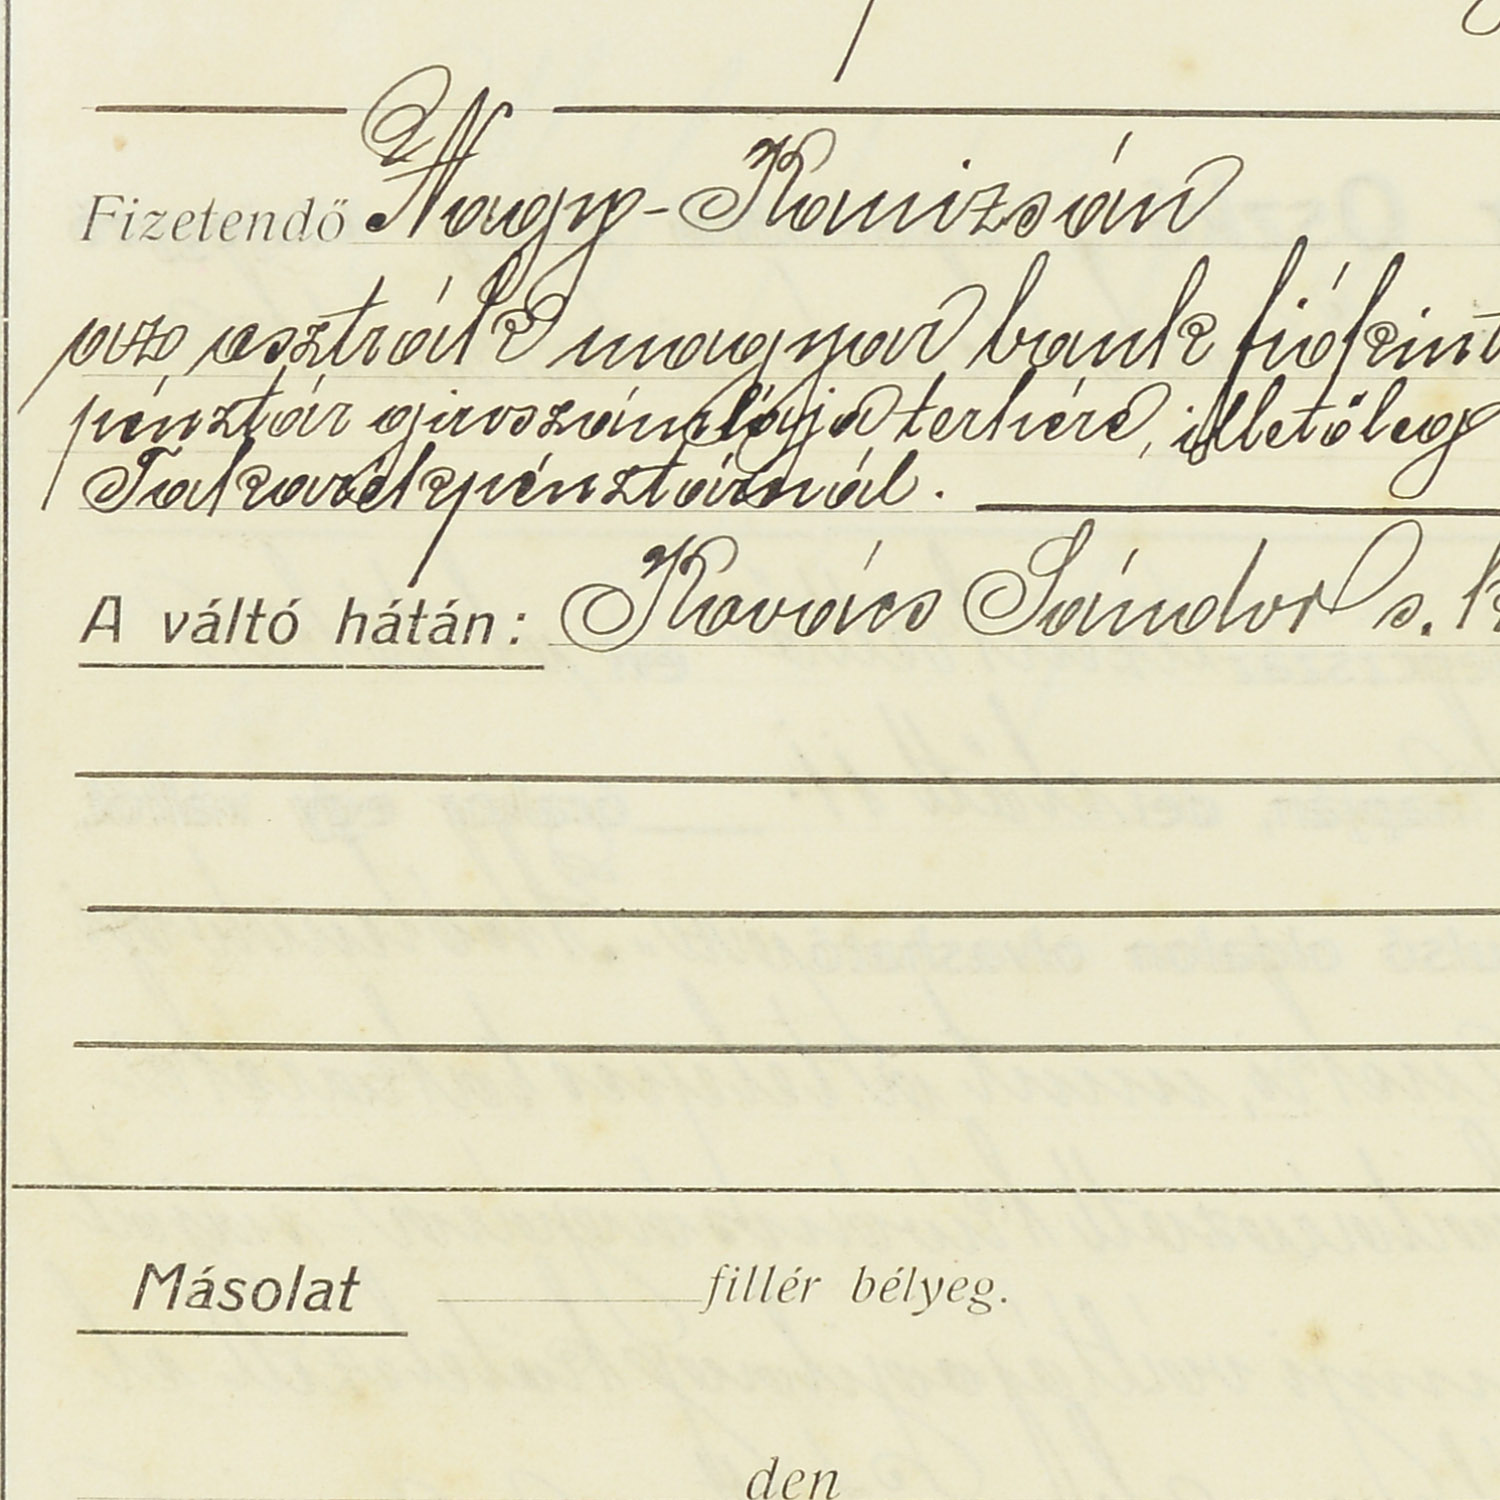 Fizetendő Nagy-Kanizsán
az osztrák magyar bank fiókint
pénztár giroszámlája terhére, illetőleg
Takarékpénztárnál.
A váltó hátán: Kovács Sándor s. k
Másolat fillér bélyeg.
den